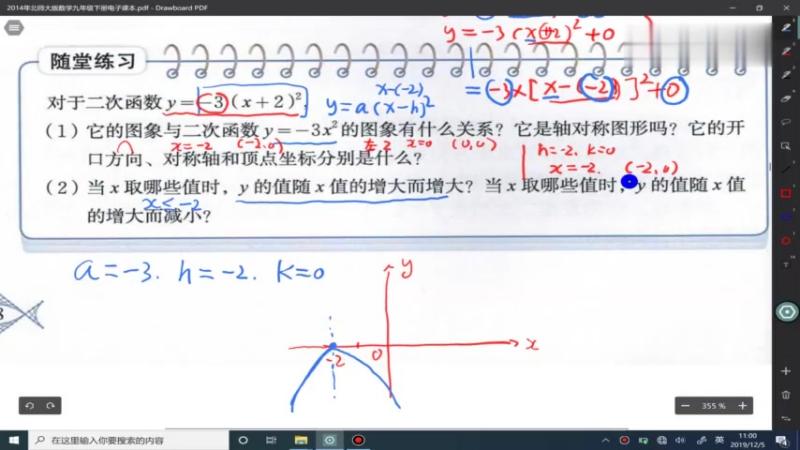 2014年北师大版数学九年级下册电子课本.pdf - Drawboard PDF
y = -3(x+2)²+0
随堂练习
x-(-2)
= -3×[x-(-2)]²+0
对于二次函数 y=-3(x+2)²,
y=a(x-h)²
(1) 它的图象与二次函数 y=-3x² 的图象有什么关系? 它是轴对称图形吗? 它的开
x=-2 (-2,0) 左2 x=0 (0,0)
h=-2. k=0
口方向、对称轴和顶点坐标分别是什么?
x=-2. (-2,0)
(2) 当 x 取哪些值时, y 的值随 x 值的增大而增大? 当 x 取哪些值时, y 的值随 x 值
x<-2
的增大而减小?
a=-3. h=-2. k=0
y
x
0
-2
355 %
在这里输入你要搜索的内容
英
11:00
2019/12/5